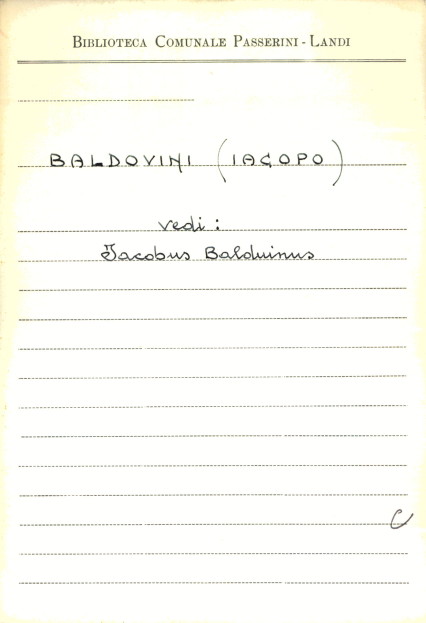 BIBLIOTECA COMUNALE PASSERINI - LANDI
BALDOVINI (IACOPO)
vedi :
Jacobus Balduinus
C